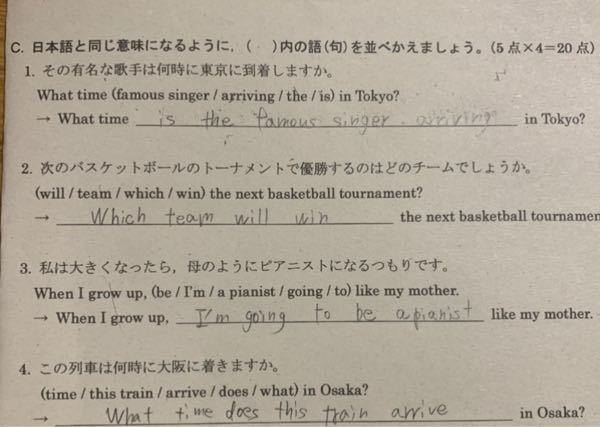 C. 日本語と同じ意味になるように，（　）内の語(句)を並べかえましょう。(5点×4=20点)
1. その有名な歌手は何時に東京に到着しますか。
What time (famous singer / arriving / the / is) in Tokyo?
→ What time is the famous singer arriving in Tokyo?
2. 次のバスケットボールのトーナメントで優勝するのはどのチームでしょうか。
(will / team / which / win) the next basketball tournament?
→ Which team will win the next basketball tournamen
3. 私は大きくなったら，母のようにピアニストになるつもりです。
When I grow up, (be / I'm / a pianist / going / to) like my mother.
→ When I grow up, I'm going to be a pianist like my mother.
4. この列車は何時に大阪に着きますか。
(time / this train / arrive / does / what) in Osaka?
→ What time does this train arrive in Osaka?